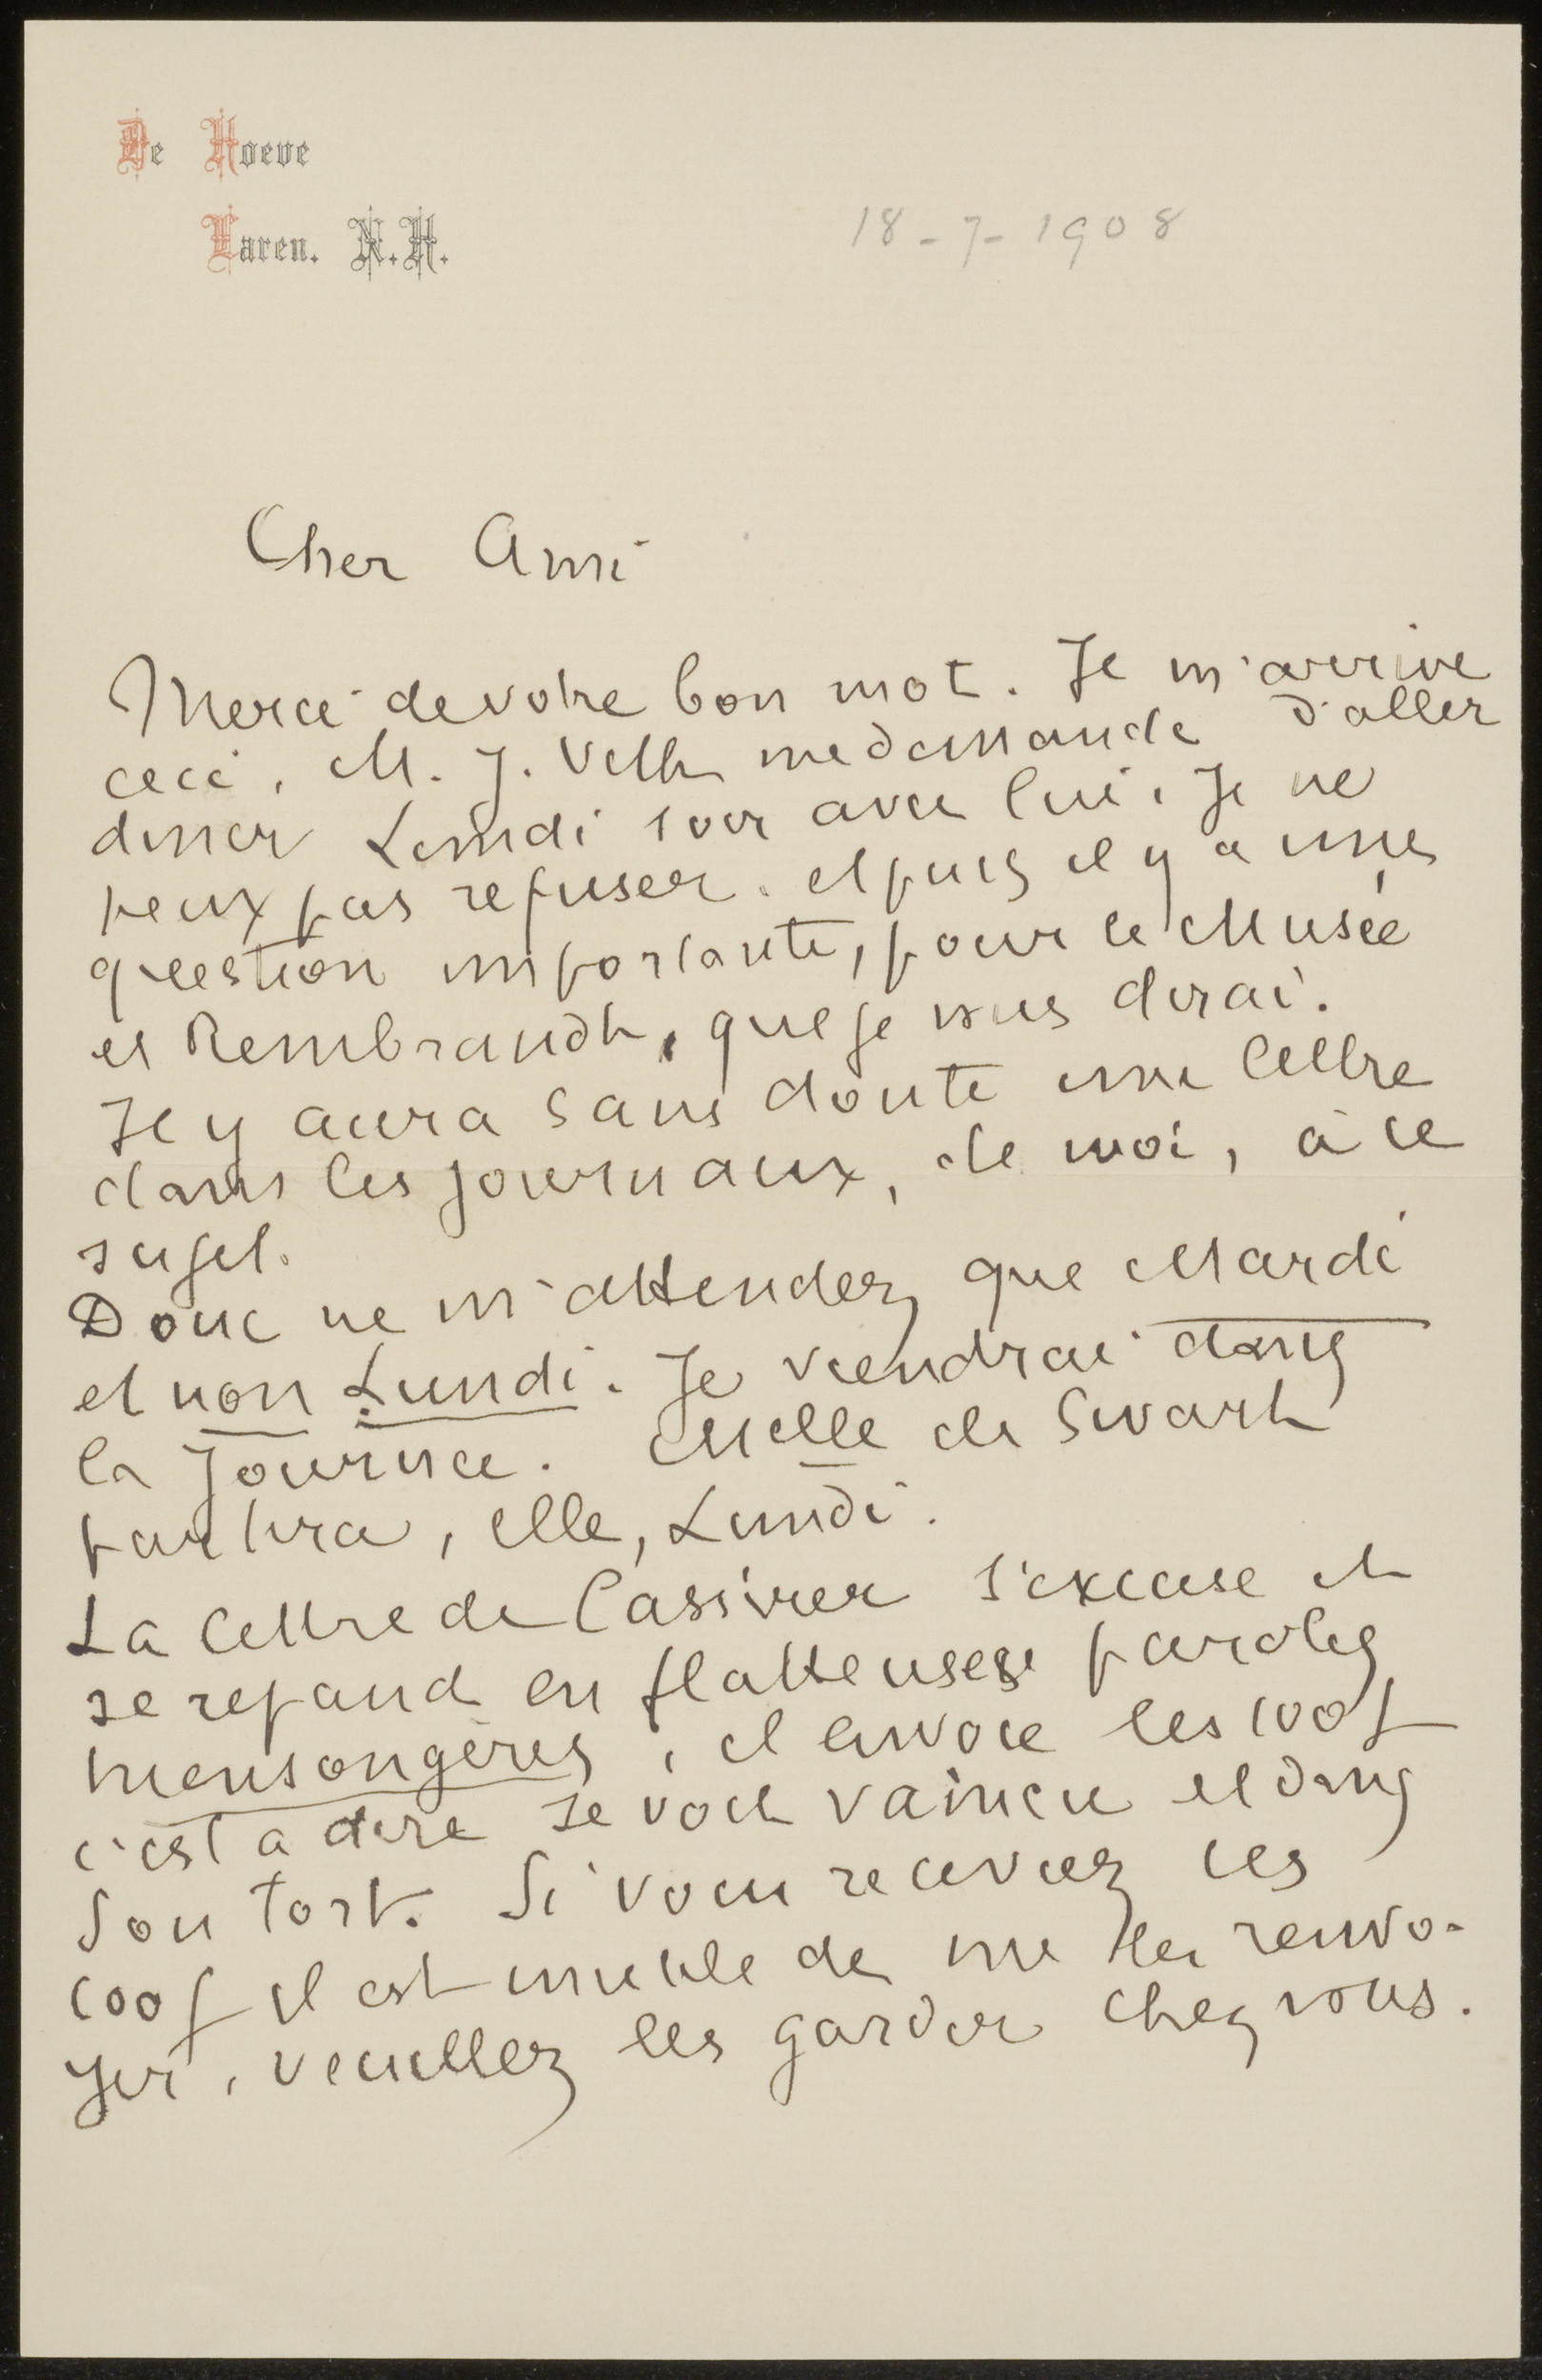 De Hoeve
Laren. N.H.
18-7-1908
Cher Ami
Merci de votre bon mot. Je m'arrive
ceci, M. J. Veth me demande d'aller
diner Lundi soir avec lui. Je ne
peux pas refuser. et puis il y a une
question importante, pour le Musée
et Rembrandt, que je vous dirai.
Il y aura sans doute une lettre
dans les journaux, de moi, à ce
sujet.
Donc ne m'attendez que Mardi
et non Lundi. Je viendrai dans
la journée. Melle de Swart
partira, elle, Lundi.
La lettre de Cassirer s'excuse et
se repand en flatteuses paroles
mensongères, il envoie les 100 f
c'est a dire se voit vaincu et dans
son tort. Si vous receviez ces
100 f il est inutile de me les renvo-
yer, veuillez les garder chez vous.